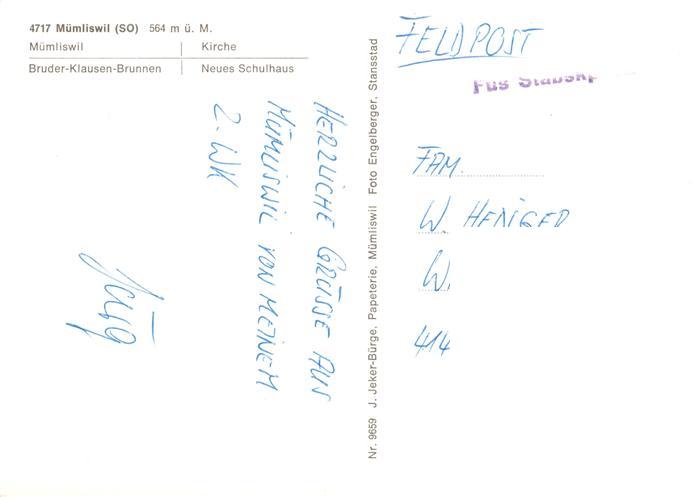 4717 Mümliswil (SO) 564 m ü. M.
Mümliswil | Kirche
Bruder-Klausen-Brunnen | Neues Schulhaus
HERZLICHE GRÜSSE AUS
MÜMLISWIL VON MEINEM
2. WK
Nr. 9659 J. Jeker-Bürge, Papeterie, Mümliswil Foto Engelberger, Stansstad
FELDPOST
Füs Stabskp
FAM.
W. HENGGED
W.
414